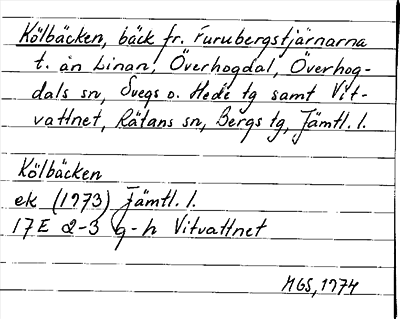 Kölbäcken, bäck fr. Furubergstjärnarna
t. ån Linan, Överhogdal, Överhog-
dals sn, Svegs o. Hede tg samt Vit-
vattnet, Rätans sn, Bergs tg, Jämtl. l.
Kölbäcken
ek (1973) Jämtl. l.
17E 2-3 g-h Vitvattnet
MGS, 1974